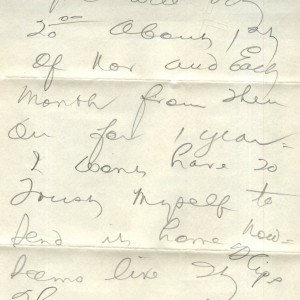 20.00 About 1st
of Nov and Each
Month from then
On for 1 year -
I wont have to
Trust Myself to
Send it home Now -
Seems like